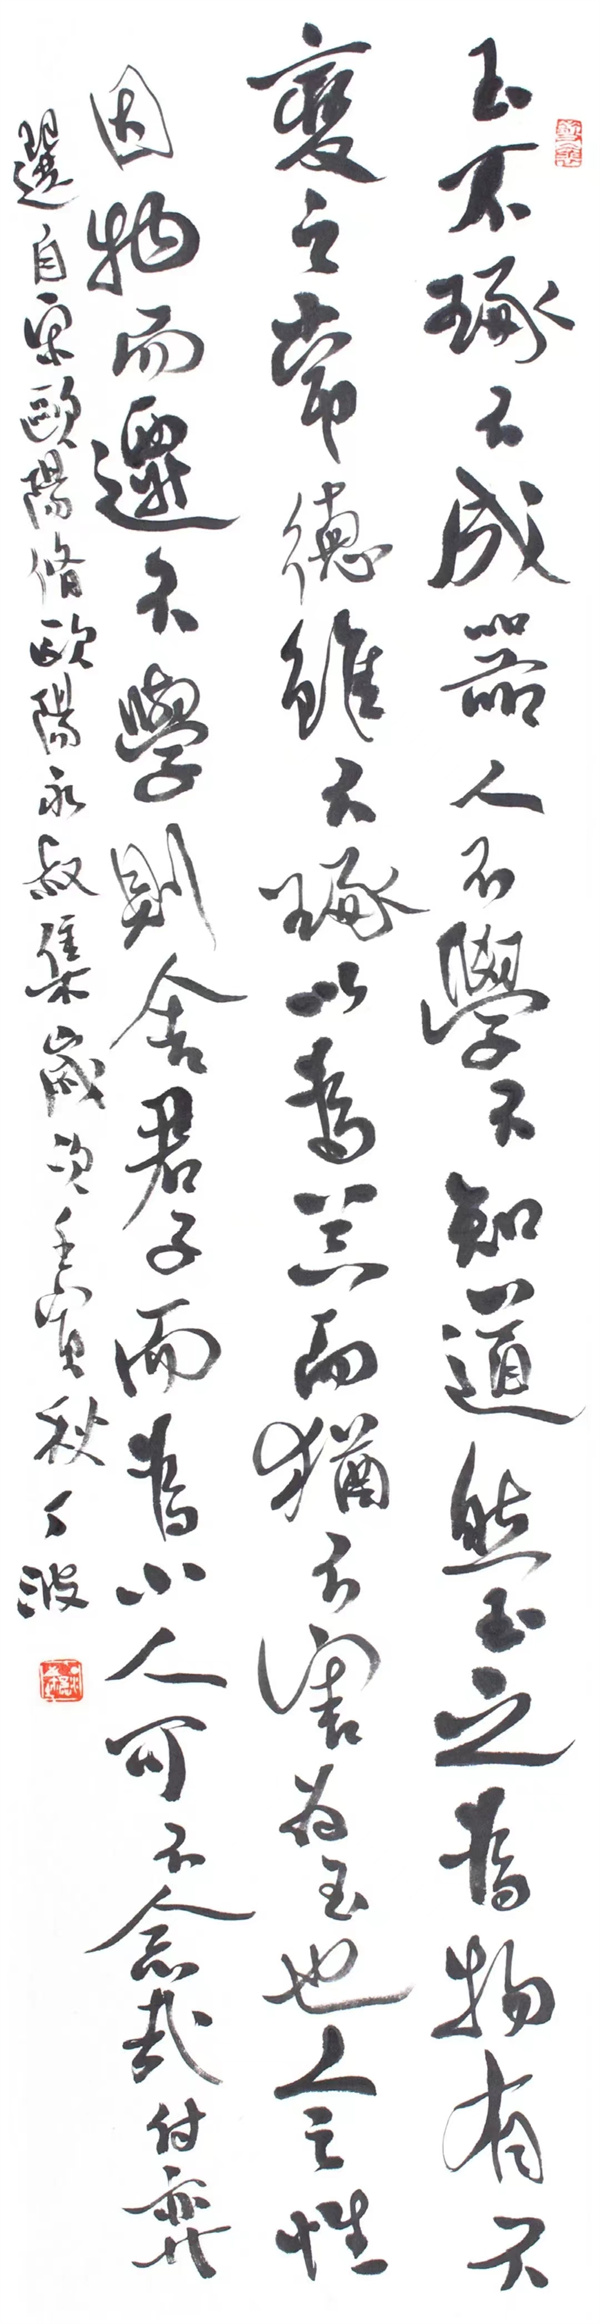 玉不琢不成器人不學不知道然玉之為物有不
變之常德雖不琢以為器而猶不害為玉也人之性
因物而遷不學則舍君子而為小人可不念哉付奕
選自宋歐陽修歐陽永叔集歲次壬寅秋丁波